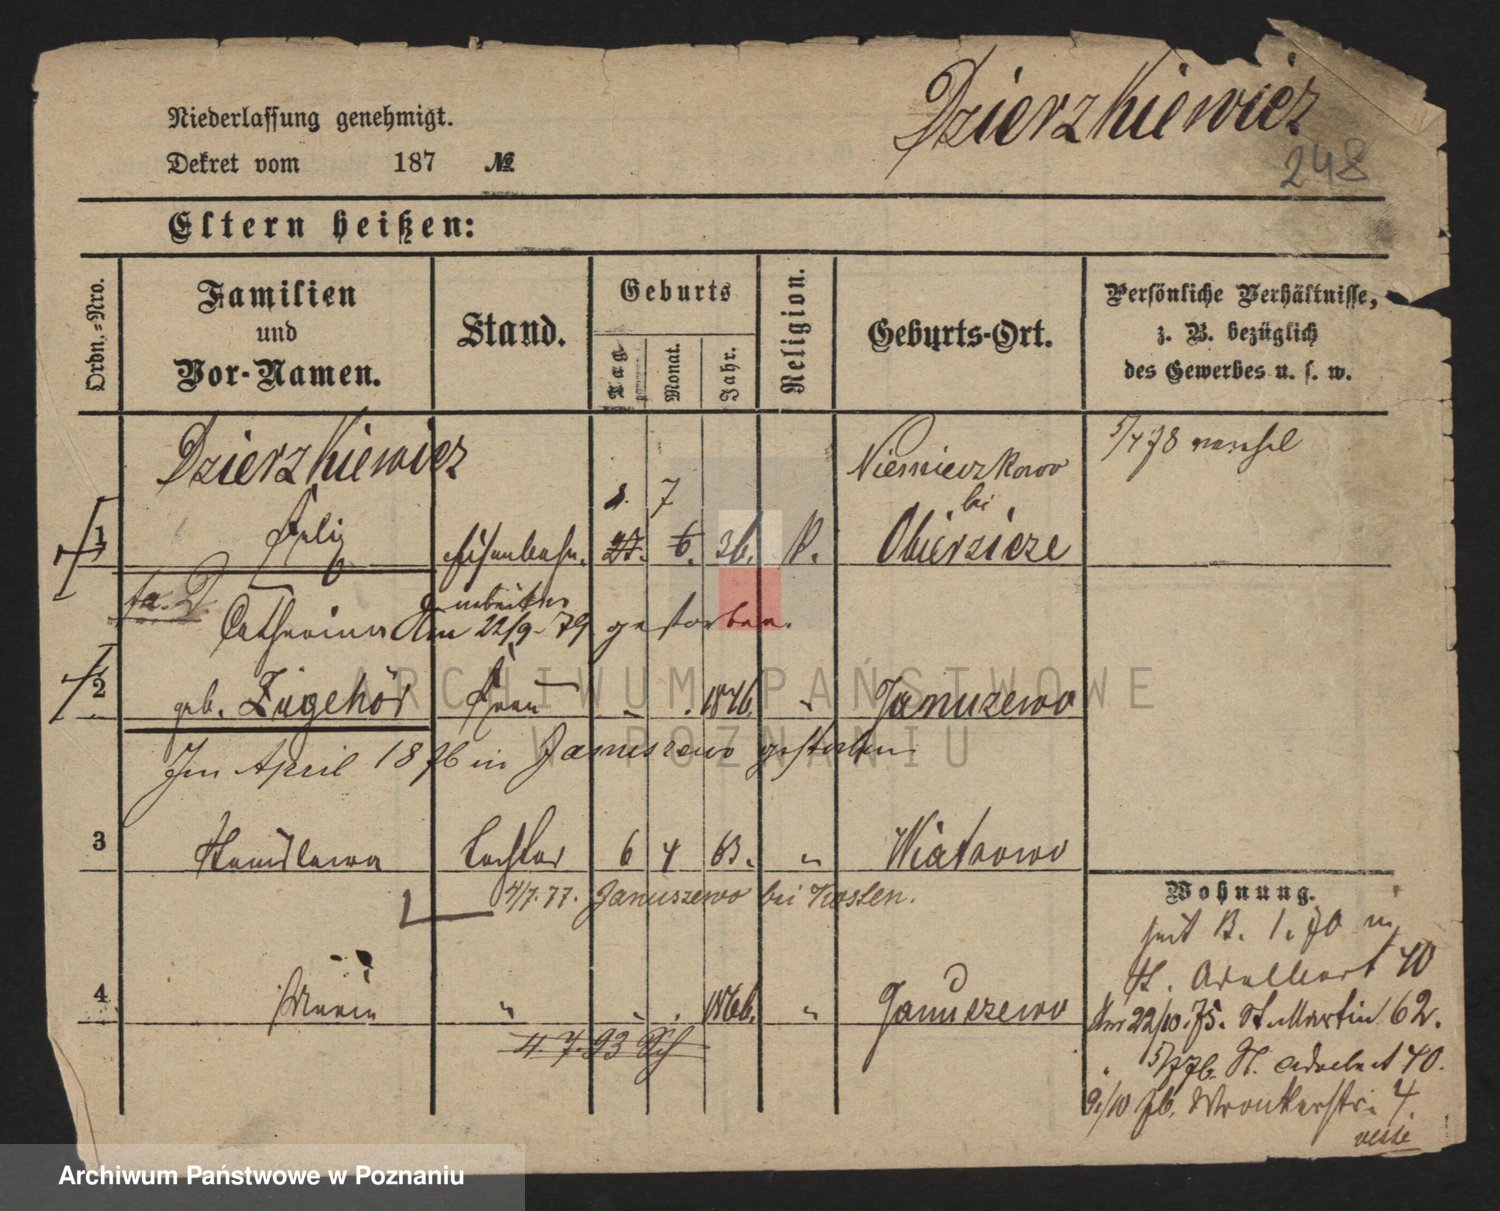 Dzierzkiewicz
248
Niederlassung genehmigt.
Dekret vom 187 №
Eltern heißen:
Ordn.=Nro.
Familien
und
Vor-Namen.
Stand.
Geburts
Tag
Monat.
Jahr.
Religion.
Geburts-Ort.
Persönliche Verhältnisse,
z. B. bezüglich
des Gewerbes u. s. w.
Dzierzkiewicz
Niemieczkowo
bei
1 Felix Eisenbahn. 27. 6. 36. K. Obierzicze
7
arbeiter
Catharina Am 22/9. 79 gestorben.
2 geb. Zugehör Frau 1846. " Januszewo
Im April 1876 in Januszewo gestorben
3 Stanislawa Tochter 6 4 63. " Wiatrowo
4/7. 77. Januszewo bei Kosten.
4 Maria " 1866. " Januszewo
4 7. 93 Sch
Wohnung.
seit B. 1. 70 in
St. Adalbert 40
22/10. 75. St. Martin 62.
St. Adalbert 40.
9/10 76. Wronkerstr. 4.
ARCHIWUM PAŃSTWOWE
W POZNANIU
Archiwum Państwowe w Poznaniu